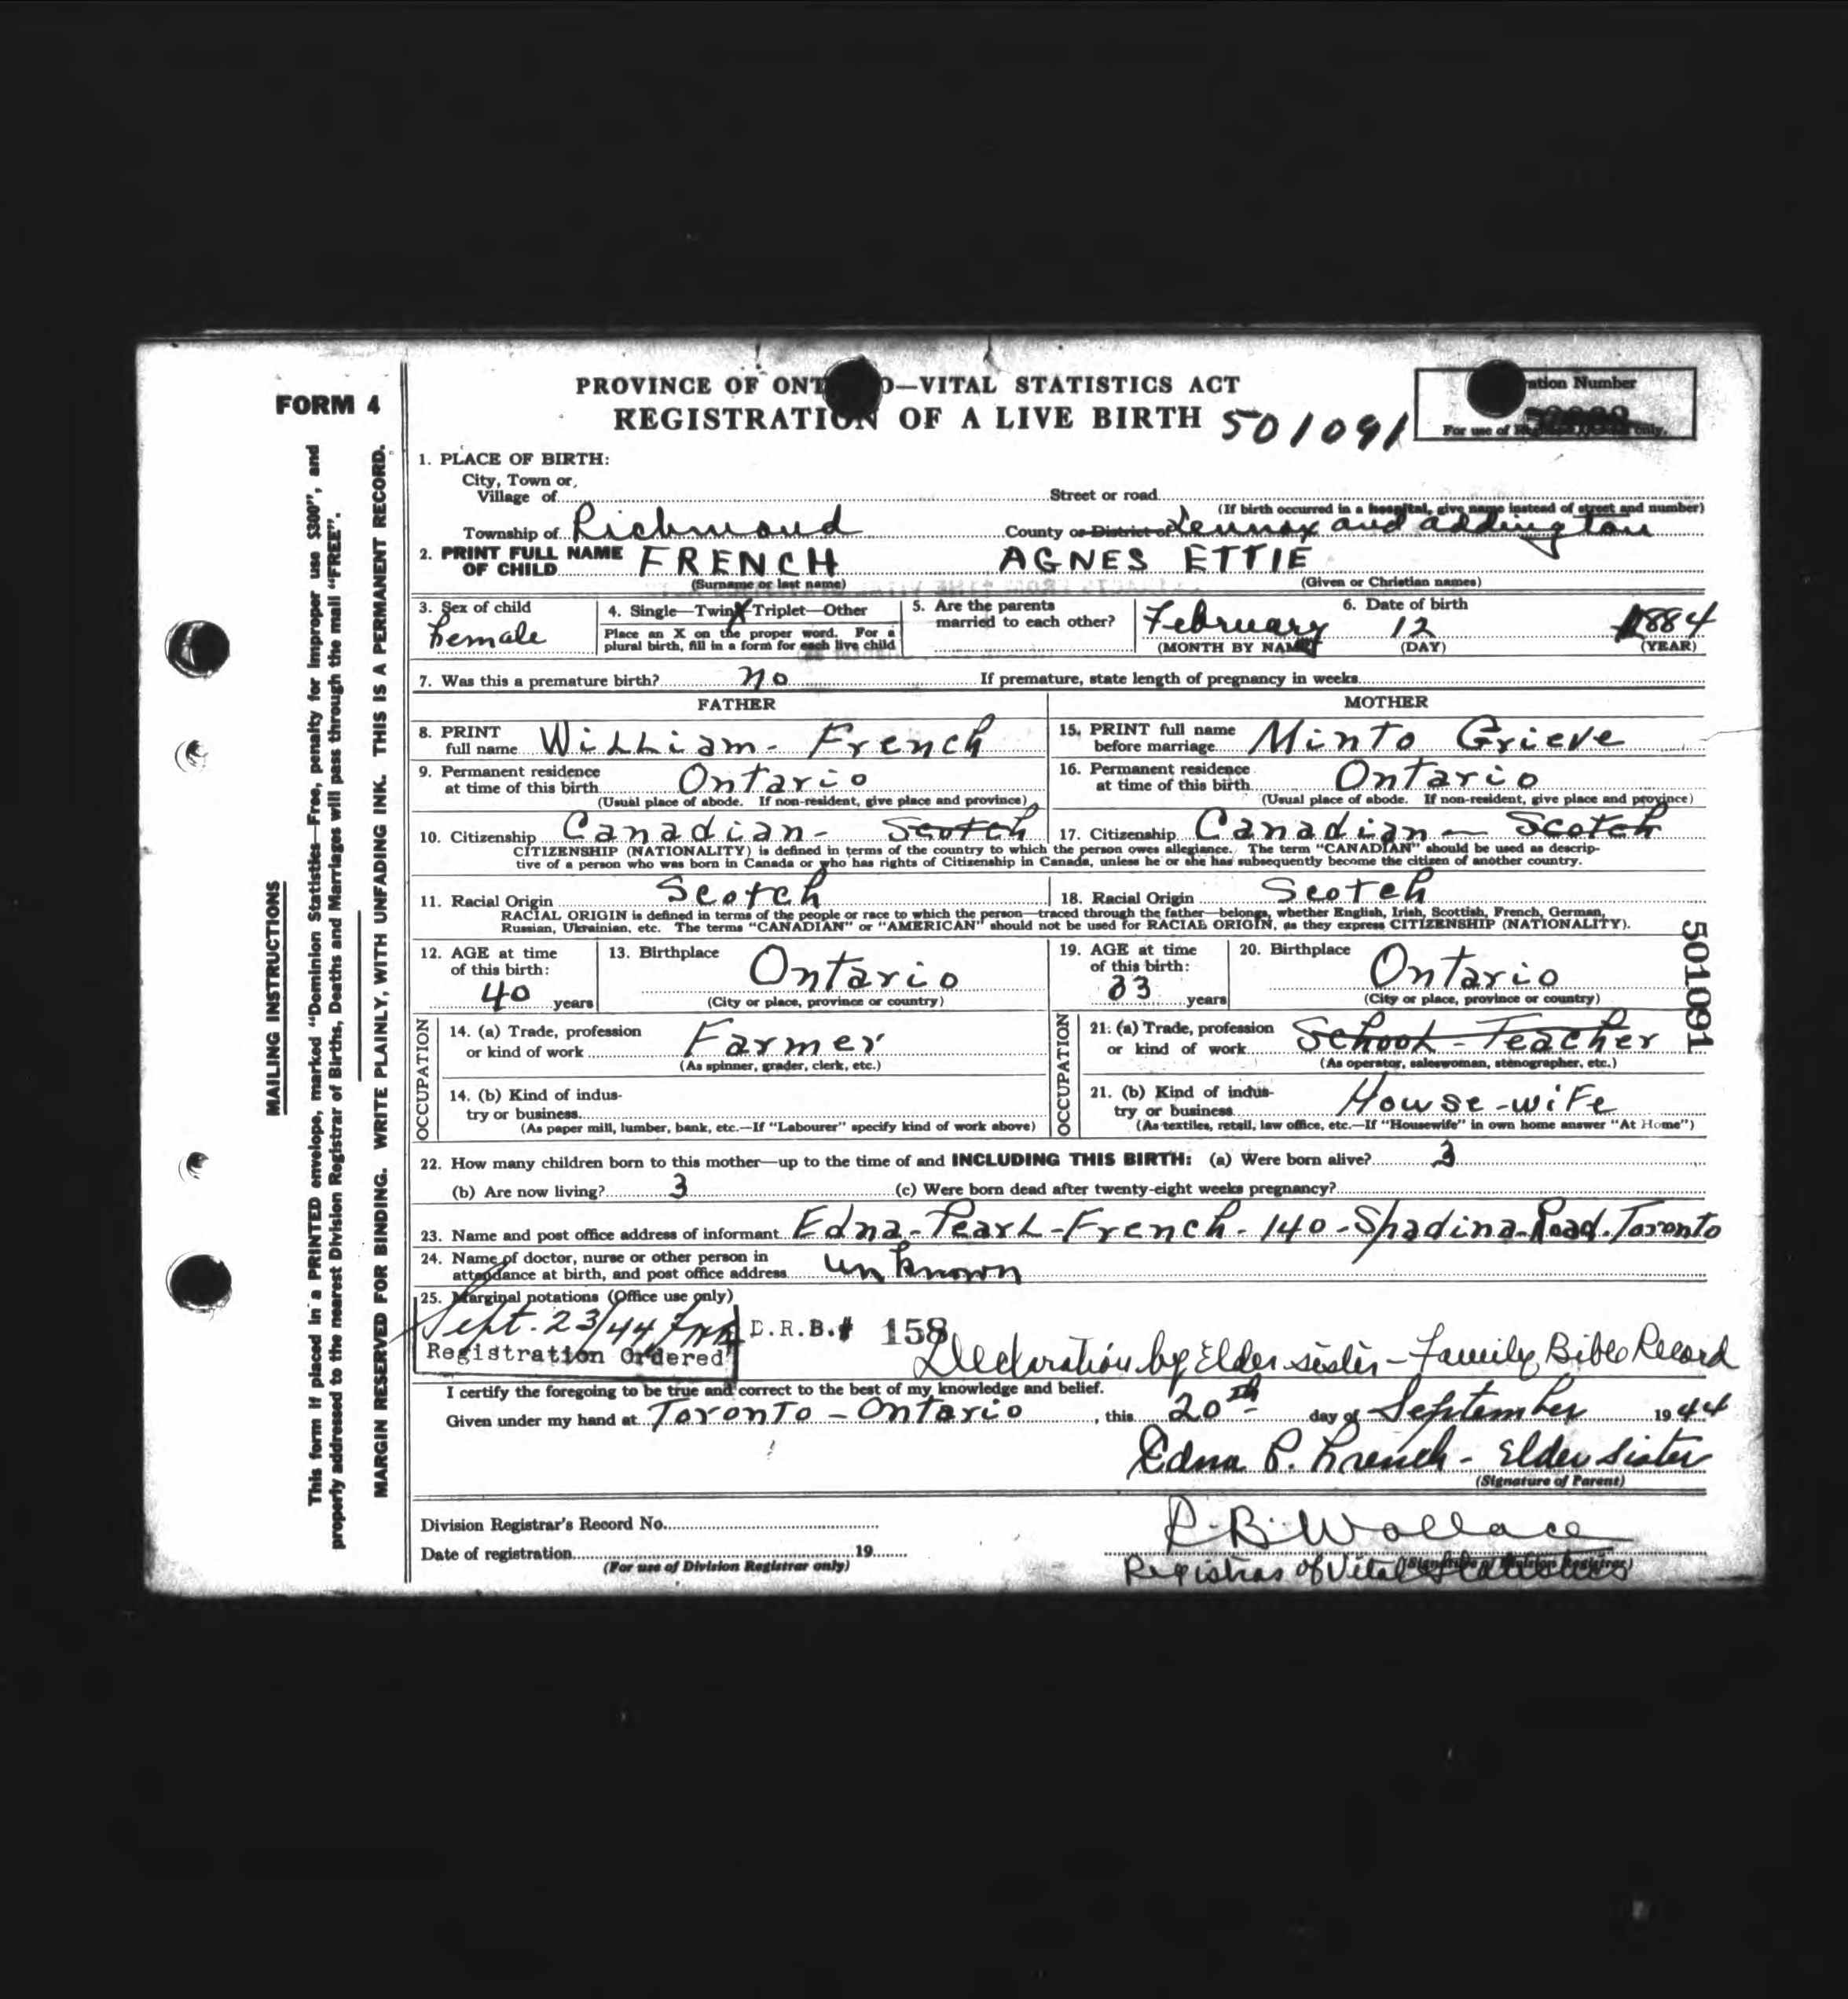 FORM 4
PROVINCE OF ONT O—VITAL STATISTICS ACT
REGISTRATION OF A LIVE BIRTH 501091
ation Number
For use of only.
1. PLACE OF BIRTH:
City, Town or
Village of Street or road
(If birth occurred in a hospital, give name instead of street and number)
Township of Richmond County or District of Lennox and Addington
2. PRINT FULL NAME OF CHILD FRENCH AGNES ETTIE
(Surname or last name) (Given or Christian names)
3. Sex of child Female
4. Single—Twin X Triplet—Other
Place an X on the proper word. For a
plural birth, fill in a form for each live child
5. Are the parents
married to each other?
6. Date of birth
February 12 1884
(MONTH BY NAME) (DAY) (YEAR)
7. Was this a premature birth? no If premature, state length of pregnancy in weeks
FATHER
8. PRINT
full name William - French
9. Permanent residence
at time of this birth Ontario
(Usual place of abode. If non-resident, give place and province)
10. Citizenship Canadian - Scotch
MOTHER
15. PRINT full name
before marriage Minto Grieve
16. Permanent residence
at time of this birth Ontario
(Usual place of abode. If non-resident, give place and province)
17. Citizenship Canadian - Scotch
CITIZENSHIP (NATIONALITY) is defined in terms of the country to which the person owes allegiance. The term "CANADIAN" should be used as descrip-
tive of a person who was born in Canada or who has rights of Citizenship in Canada, unless he or she has subsequently become the citizen of another country.
11. Racial Origin Scotch 18. Racial Origin Scotch
RACIAL ORIGIN is defined in terms of the people or race to which the person—traced through the father—belongs, whether English, Irish, Scottish, French, German,
Russian, Ukrainian, etc. The terms "CANADIAN" or "AMERICAN" should not be used for RACIAL ORIGIN, as they express CITIZENSHIP (NATIONALITY).
12. AGE at time
of this birth:
40 years
13. Birthplace Ontario
(City or place, province or country)
19. AGE at time
of this birth:
33 years
20. Birthplace Ontario
(City or place, province or country)
OCCUPATION
14. (a) Trade, profession
or kind of work Farmer
(As spinner, grader, clerk, etc.)
14. (b) Kind of indus-
try or business
(As paper mill, lumber, bank, etc.—If "Labourer" specify kind of work above)
OCCUPATION
21. (a) Trade, profession
or kind of work School-Teacher
(As operator, saleswoman, stenographer, etc.)
21. (b) Kind of indus-
try or business House-wife
(As textiles, retail, law office, etc.—If "Housewife" in own home answer "At Home")
22. How many children born to this mother—up to the time of and INCLUDING THIS BIRTH: (a) Were born alive? 3
(b) Are now living? 3 (c) Were born dead after twenty-eight weeks pregnancy?
23. Name and post office address of informant Edna-Pearl-French-140-Spadina-Road. Toronto
24. Name of doctor, nurse or other person in
attendance at birth, and post office address unknown
25. Marginal notations (Office use only)
Sept. 23/44
Registration Ordered
D.R.B.# 158
Declaration by Elder sister - Family Bible Record
I certify the foregoing to be true and correct to the best of my knowledge and belief.
Given under my hand at Toronto - Ontario, this 20th day of September 1944
Edna P. French - Elder sister
(Signature of Parent)
Division Registrar's Record No.
Date of registration 19
(For use of Division Registrar only)
R. B. Wallace
(Signature of Division Registrar)
Registrar of Vital Statistics
501091
MAILING INSTRUCTIONS
This form if placed in a PRINTED envelope, marked "Dominion Statistics—Free, penalty for improper use $300", and
properly addressed to the nearest Division Registrar of Births, Deaths and Marriages will pass through the mail "FREE".
MARGIN RESERVED FOR BINDING. WRITE PLAINLY, WITH UNFADING INK. THIS IS A PERMANENT RECORD.